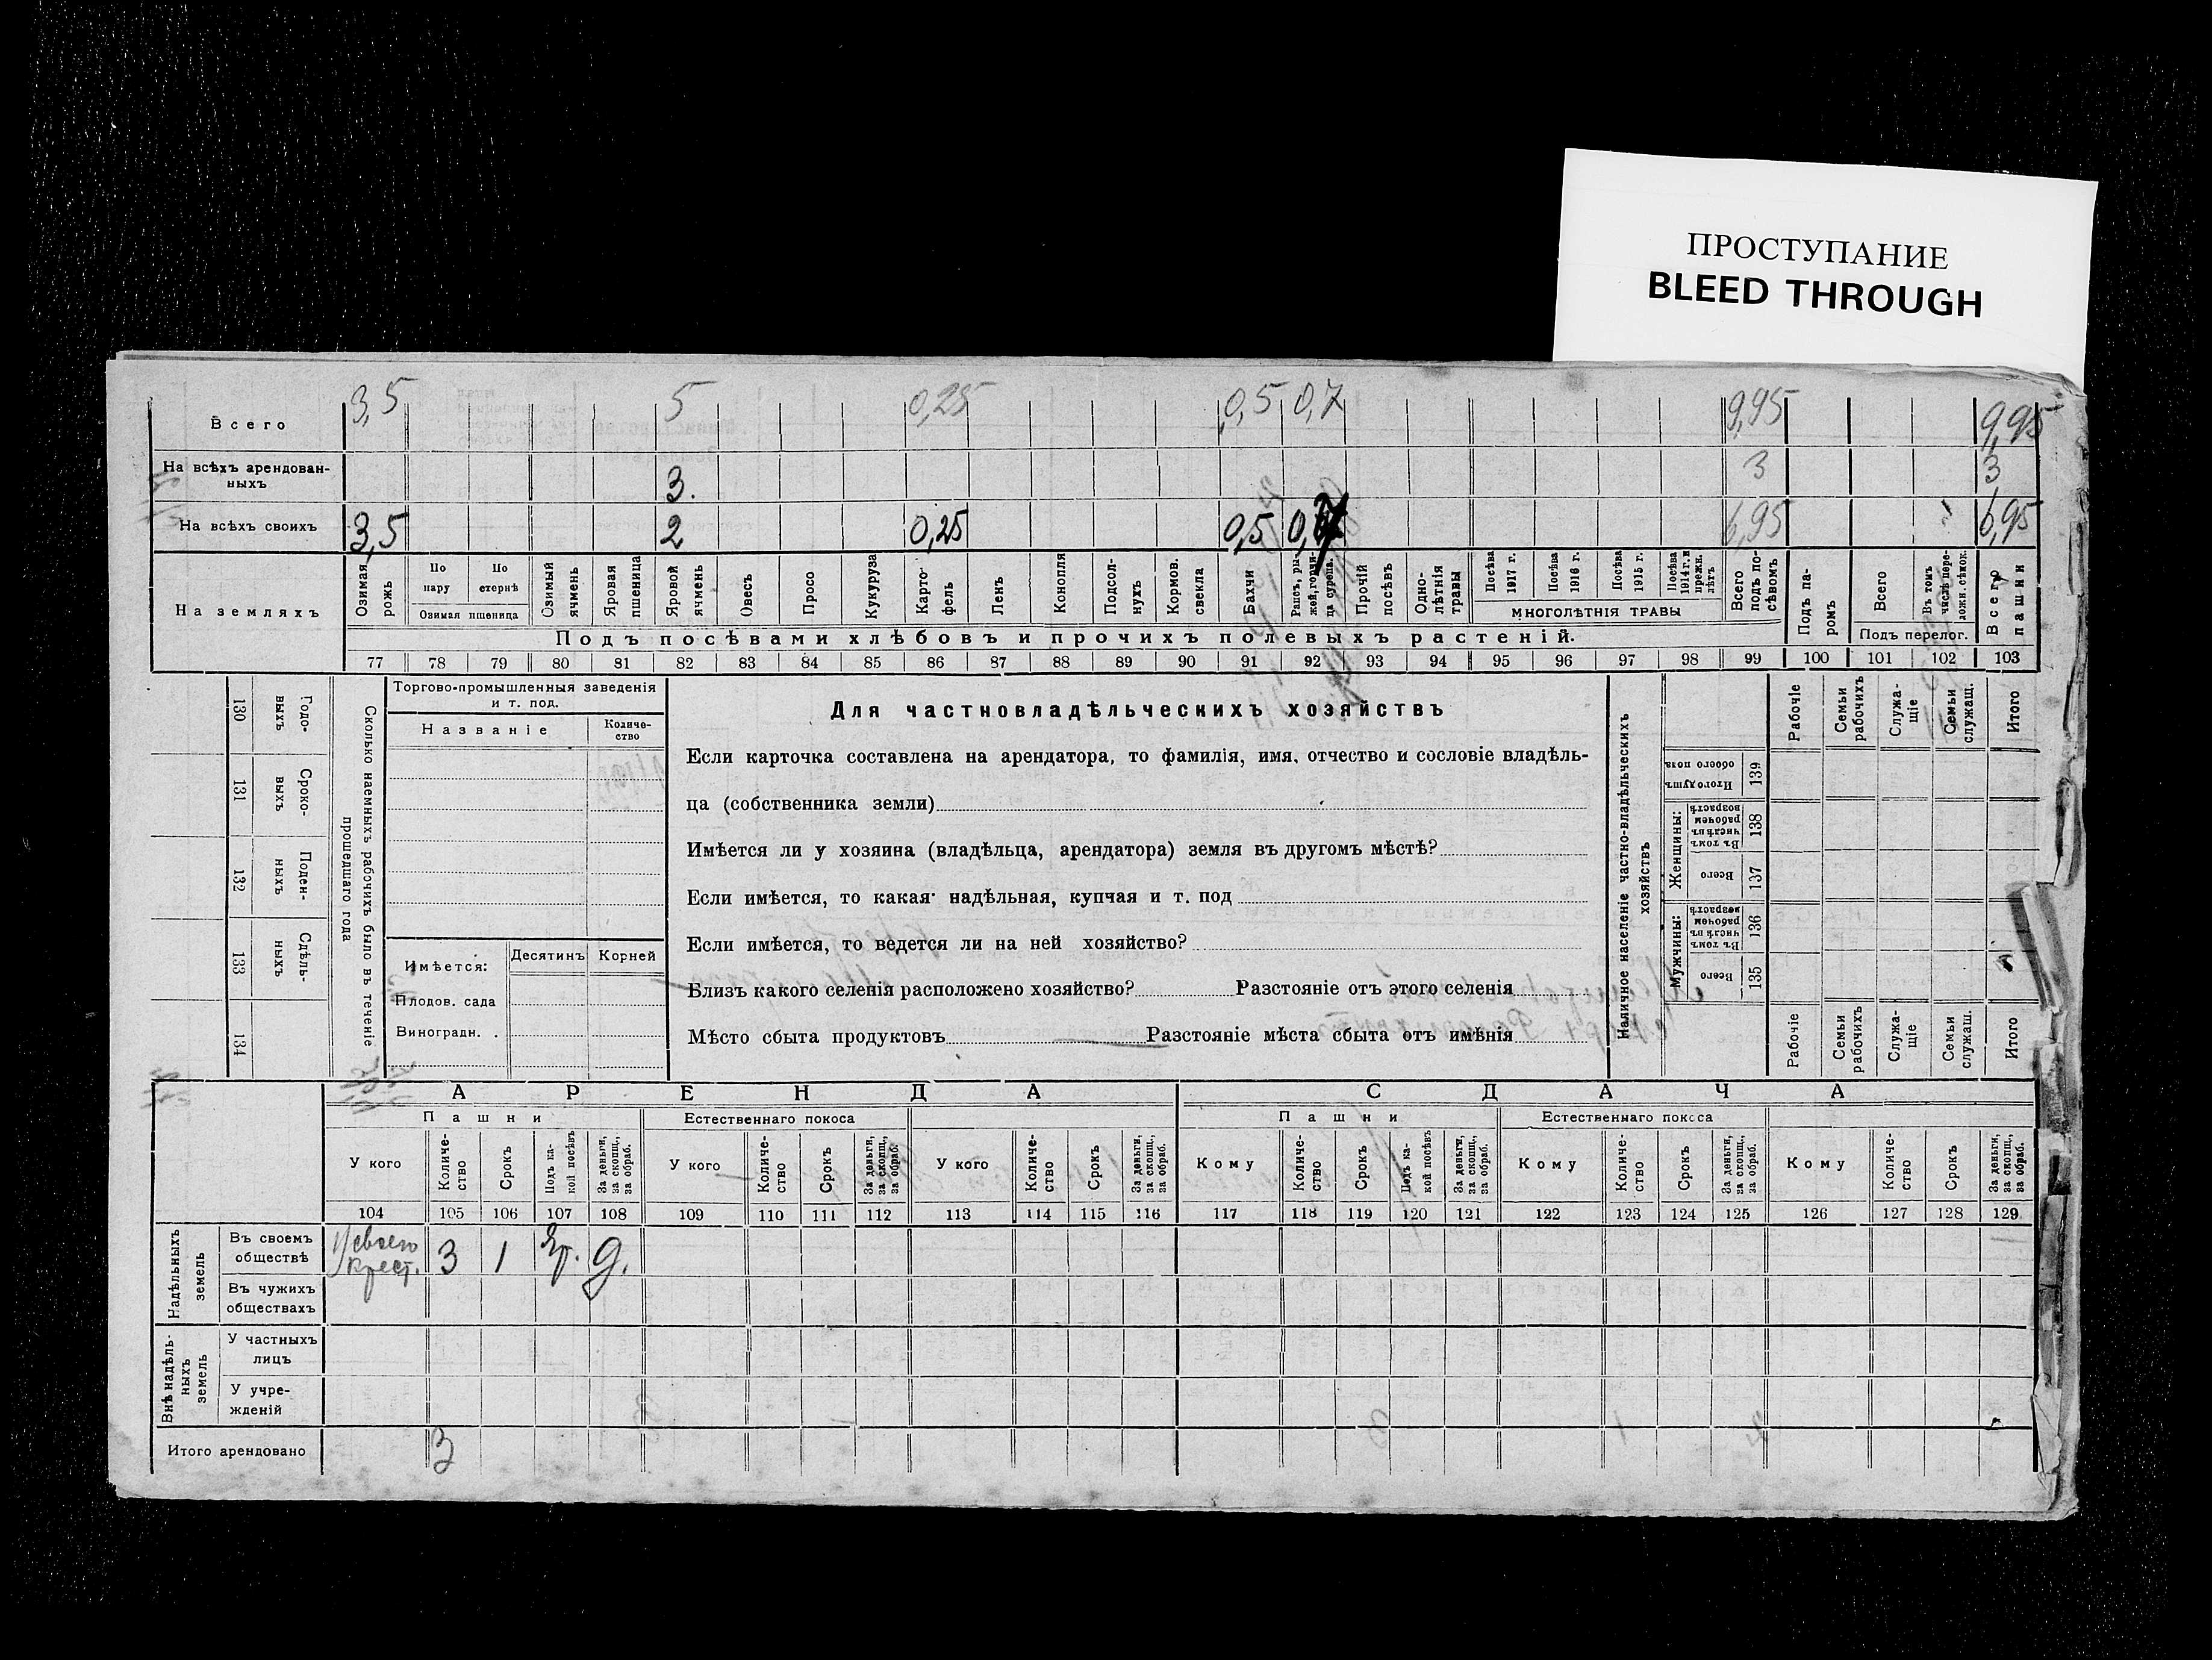 ПРОСТУПАНИЕ
BLEED THROUGH
Всего 3,5 5 0,25 0,5 0,7 9,95 9,95
На всѣхъ арендован-
ныхъ 3. 3 3
На всѣхъ своихъ 3,5 2 0,25 0,5 6,95 6,95
На земляхъ
Озимая рожь
По нару
По стернѣ
Озимая пшеница
Озимый ячмень
Яровая пшеница
Яровой ячмень
Овесъ
Просо
Кукуруза
Карто-
фель
Ленъ
Конопля
Подсол-
нухъ
Кормов. свекла
Бахчи
Рапсъ, ры-
жей, горчи-
ца сурепа.
Прочій посѣвъ
Одно-
лѣтнія травы
Посѣва 1917 г.
Посѣва 1916 г.
Посѣва 1915 г.
Посѣва 1914 г. и прежн. лѣтъ
МНОГОЛѢТНІЯ ТРАВЫ
Всего подъ по-
сѣвомъ
Подъ па-
ромъ
Всего
Въ томъ числѣ пере-
ложн. сѣнок.
Подъ перелог.
Всего пашни
Подъ посѣвами хлѣбовъ и прочихъ полевыхъ растеній.
77 78 79 80 81 82 83 84 85 86 87 88 89 90 91 92 93 94 95 96 97 98 99 100 101 102 103
130 Годо-
выхъ
131 Сроко-
выхъ
132 Поден-
ныхъ
133 Сдѣль-
ныхъ
134
Сколько наемныхъ рабочихъ было въ теченіе
прошедшаго года
Торгово-промышленныя заведенія
и т. под.
Названіе
Количе-
ство
Имѣется:
Десятинъ Корней
Плодов. сада
Виноградн. .
Для частновладѣльческихъ хозяйствъ
Если карточка составлена на арендатора, то фамилія, имя, отчество и сословіе владѣль-
ца (собственника земли)
Имѣется ли у хозяина (владѣльца, арендатора) земля въ другомъ мѣстѣ?
Если имѣется, то какая· надѣльная, купчая и т. под
Если имѣется, то ведется ли на ней хозяйство?
Близъ какого селенія расположено хозяйство? Разстояніе отъ этого селенія
Мѣсто сбыта продуктовъ Разстояніе мѣста сбыта отъ имѣнія
Наличное населеніе частно-владѣльческихъ
хозяйствъ
Рабочіе
Семьи рабочихъ
Служа-
щіе
Семьи служащ.
Итого
Итого душъ обоего пола 139
Женщины:
Въ томъ числѣ въ рабочемъ возрастѣ 138
Всего 137
Мужчины:
Въ томъ числѣ въ рабочемъ возрастѣ 136
Всего 135
Рабочіе
Семьи рабочихъ
Служа-
щіе
Семьи служащ.
Итого
АРЕНДА СДАЧА
Пашни Естественнаго покоса Пашни Естественнаго покоса
У кого
Количе-
ство
Срокъ
Подъ ка-
кой посѣвъ
За деньги, за скопщ., за обраб.
У кого
Количе-
ство
Срокъ
За деньги, за скопщ., за обраб.
У кого
Количе-
ство
Срокъ
За деньги, за скопщ., за обраб.
Кому
Количе-
ство
Срокъ
Подъ ка-
кой посѣвъ
За деньги, за скопщ., за обраб.
Кому
Количе-
ство
Срокъ
За деньги, за скопщ., за обраб.
Кому
Количе-
ство
Срокъ
За деньги, за скопщ., за обраб.
104 105 106 107 108 109 110 111 112 113 114 115 116 117 118 119 120 121 122 123 124 125 126 127 128 129
Надѣльныхъ
земель
Въ своемъ
обществѣ
своего
крест. 3 1 Яр. д.
Въ чужихъ
обществахъ
Внѣ надѣль-
ныхъ
земель
У частныхъ
лицъ
У учре-
жденій
Итого арендовано 3